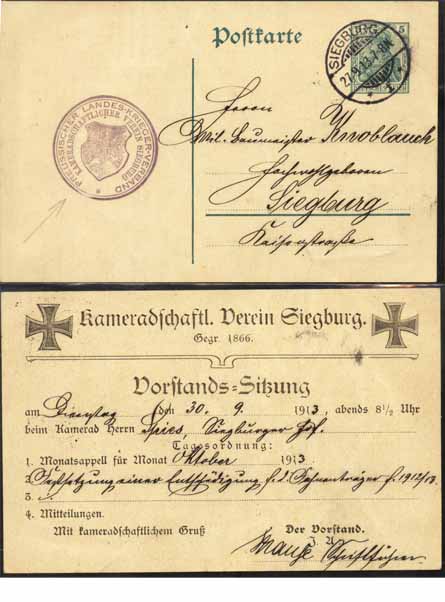 Postkarte
SIEGBURG
27.9.13.
5
PREUSSISCHER LANDES-KRIEGER-VERBAND
KAMERADSCHAFTLICHER VEREIN SIEGBURG
Herrn
Mil. Baumeister Knoblauch
Hochwohlgeboren
Siegburg
Kaiserstraße
Kameradschaftl. Verein Siegburg.
Gegr. 1866.
Vorstands-Sitzung
am Dienstag den 30. 9. 1913, abends 8½ Uhr
beim Kamerad Herrn Spies, Siegburger Hof.
Tagesordnung:
1. Monatsappell für Monat Oktober 1913.
2. Festsetzung einer Entschädigung f. d. Fahnenträger f. 1912/13.
3.
4. Mitteilungen.
Mit kameradschaftlichem Gruß
Der Vorstand.
J. A.
Schriftführer